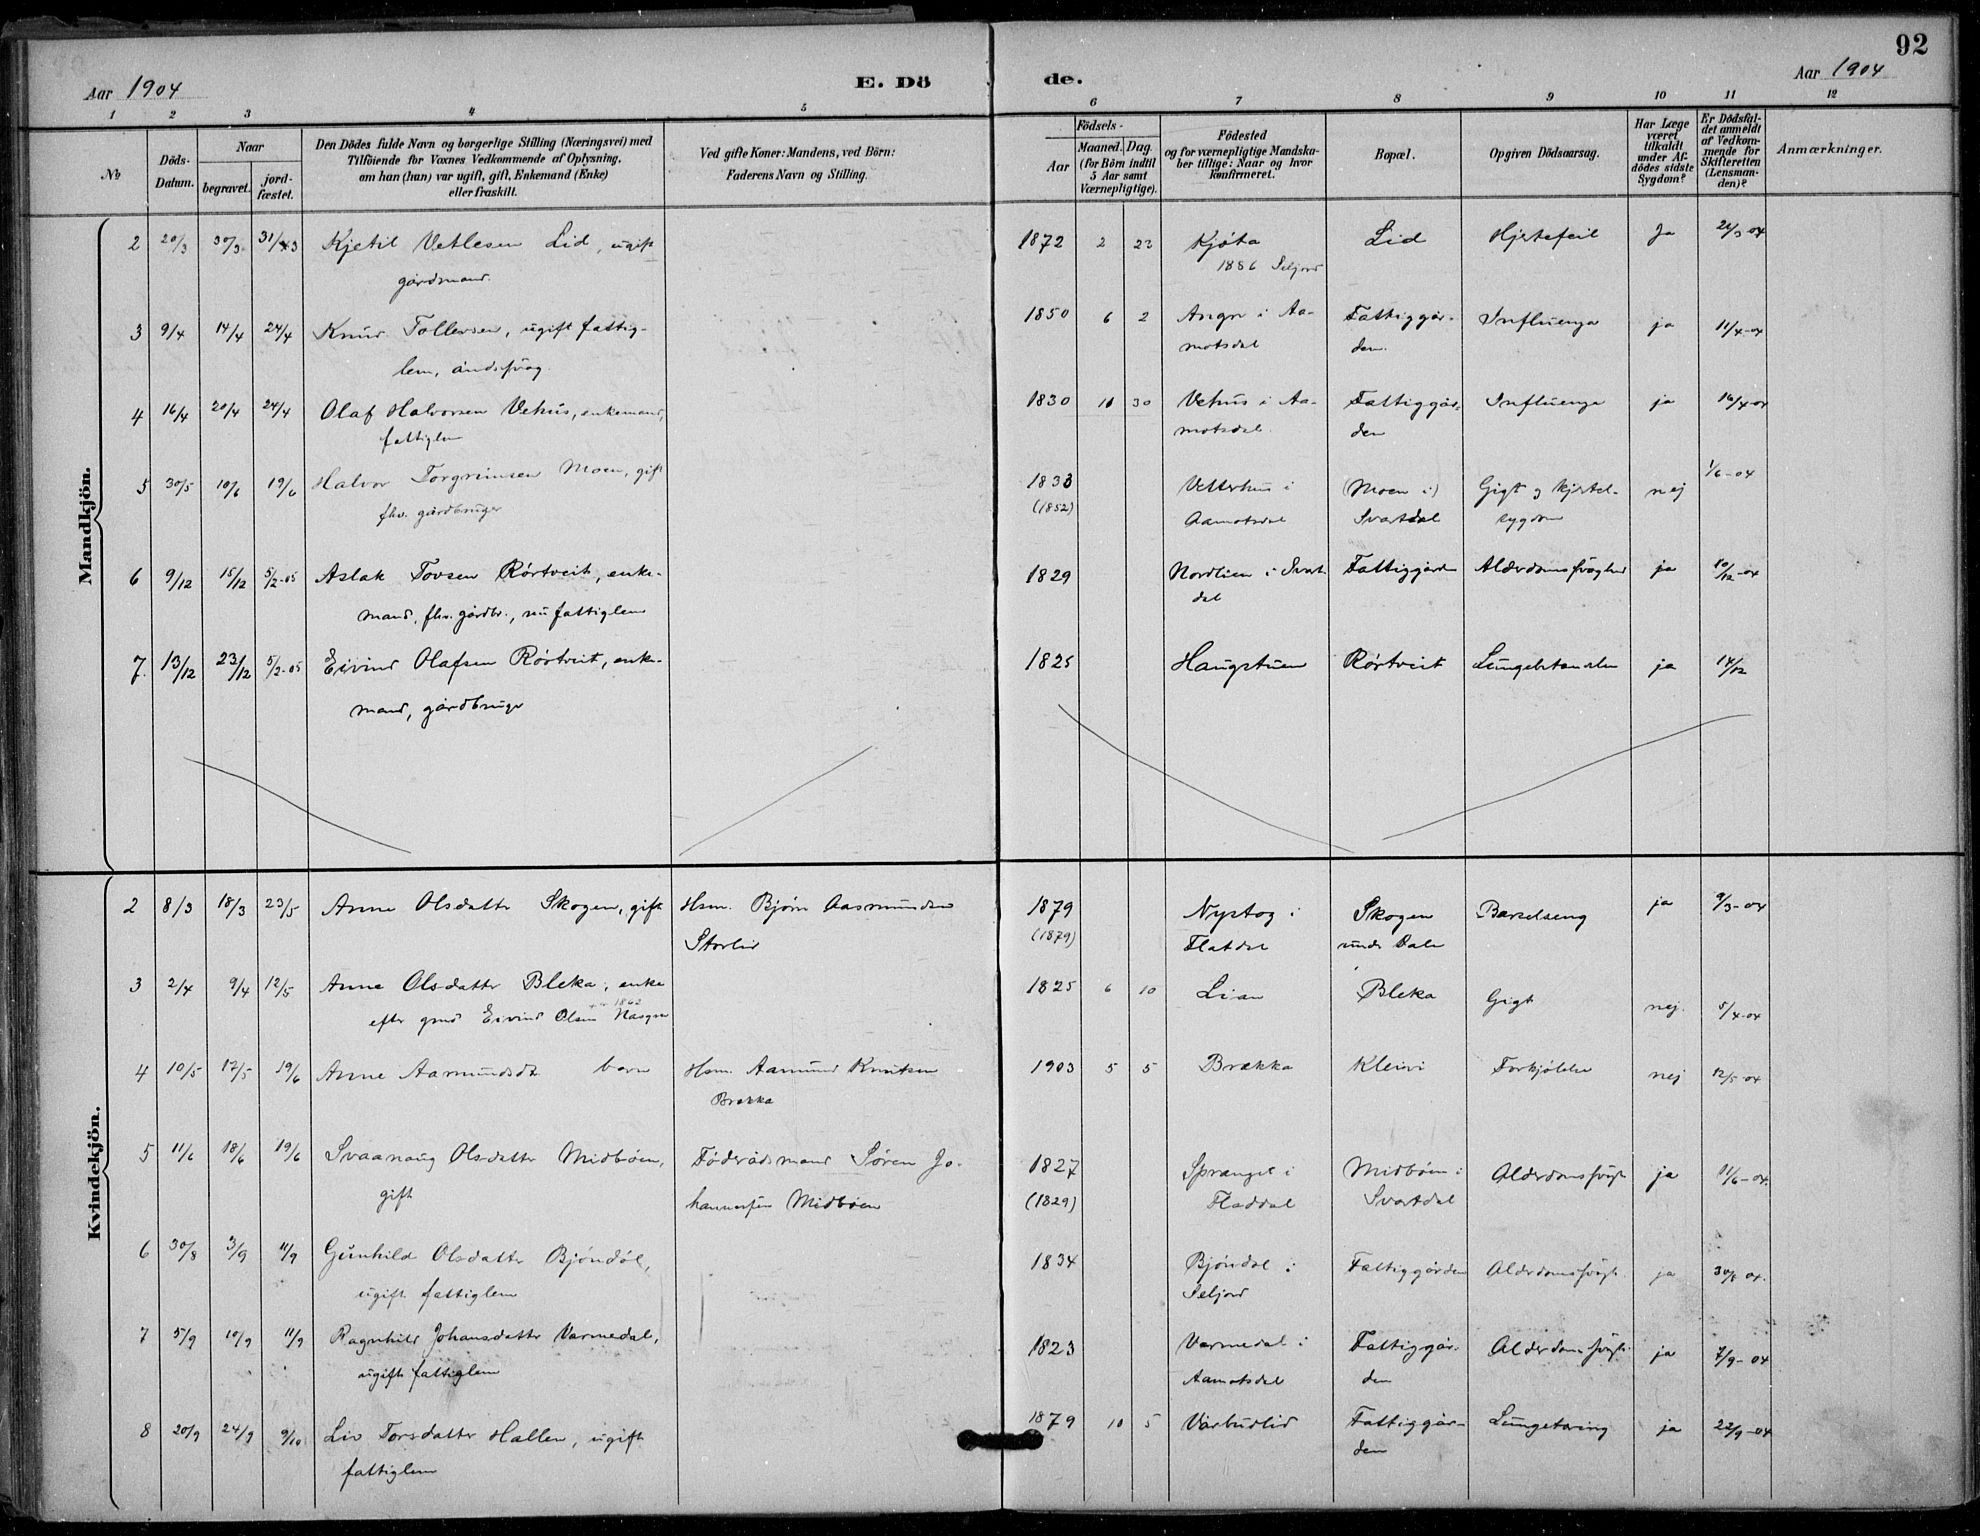 92
Aar 1904
E. Dö
de.
Aar 1904
1 2 3 4 5 6 7 8 9 10 11 12
No
Döds-
Datum.
Naar
begravet.
jord-
fæstet.
Den Dödes fulde Navn og borgerlige Stilling (Næringsvei) med
Tilföiende for Voxnes Vedkommende af Oplysning,
om han (hun) var ugift, gift, Enkemand (Enke)
eller fraskilt.
Ved gifte Koner: Mandens, ved Börn:
Faderens Navn og Stilling.
Födsels-
Aar
Maaned. Dag.
(for Börn indtil
5 Aar samt
Værnepligtige).
Födested
og for værnepligtige Mandska-
ber tillige: Naar og hvor
konfirmeret.
Bopæl.
Opgiven Dödsaarsag.
Har Læge
været
tilkaldt
under Af-
dödes sidste
Sygdom?
Er Dödsfal-
det anmeldt
af Vedkom-
mende for
Skifteretten
(Lensman-
den)?
Anmærkninger.
Mandkjön.
2 20/3 30/3 31/3 Kjetil Vetlesen Lid, ugift 1872 2 23 Kjøta Lid Hjertefeil Ja 24/3 04
gårdmand. 1886 Seljord
3 9/4 14/4 24/4 Knud Tollevsen, ugift fattig- 1850 6 2 Angr i Aa- Fattiggår- Influenza ja 11/4-04
lem, åndssvag. motsdal den.
4 16/4 20/4 24/4 Olaf Halvorsen Vehus, enkemand, 1830 10 30 Vehus i Aa- Fattiggår- Influenza ja 16/4 04
fattiglem motsdal. den
5 30/5 10/6 19/6 Halvor Torgrimsen Moen, gift 1833 Vetterhus i (Moen i) Gigt og kjertel- nej 1/6-04
fhv. gårdbruger (1852) Aamotsdal Svartdal sygdom
6 9/12 15/12 5/2-05 Aslak Tovsen Rørtveit, enke- 1829 Nordlien i Svart Fattiggården Alderdomssvaghed ja 10/12-04
mand, fhv. gårdbr., nu fattiglem dal
7. 13/12 23/12 5/2-05 Eivind Olafsen Rørtveit, enke- 1825 Haugstuen Rørtveit Lungebetændelse ja 14/12
mand, gårdbruger
Kvindekjön.
2 8/3 18/3 23/5 Anne Olsdatter Skogen, gift Hsm. Bjørn Aasmundsen 1879 Nystog i Skogen Barselseng ja 9/3-04
Storlid (1879) Flatdal under Dale
3 2/4 9/4 12/5 Anne Olsdatter Bleka, enke 1825 6 10 Lian Bleka Gigt nej. 5/4-04
1862
efter gmd Eivind Olsen
4 10/5 17/5 19/6 Anne Aamundsdt. barn Hsm. Aamund Knutsen 1903 5 5 Brækka Kleivi Forkjølelse nej 12/5-04
Brækka
5 11/6 18/6 19/6 Svaanaug Olsdatter Midbøen, Føderådsmand Søren Jo- 1827 Sprangel i Midbøen i Alderdomssvagh ja 11/6-04.
gift hannessen Midbøen (1829) Fladdal Svartdal
6 30/8 3/9 11/9 Gunhild Olsdatter Bjøndøl, 1834 Bjøndal i Fattiggården Alderdomssvagh. ja 30/8 04.
ugift fattiglem Seljord
7 5/9 10/9 11/9 Ragnhild Johansdatter Varmedal, 1823 Varmedal i Fattiggår- Alderdomssvagh. ja 7/9-04
ugift fattiglem Aamotsdal den
8 20/9 24/9 9/10 Liv Torsdatter Hallen, ugift 1879 10 5 Vårbudlid Fattiggår- Lungetæring ja 22/9-04
fattiglem den